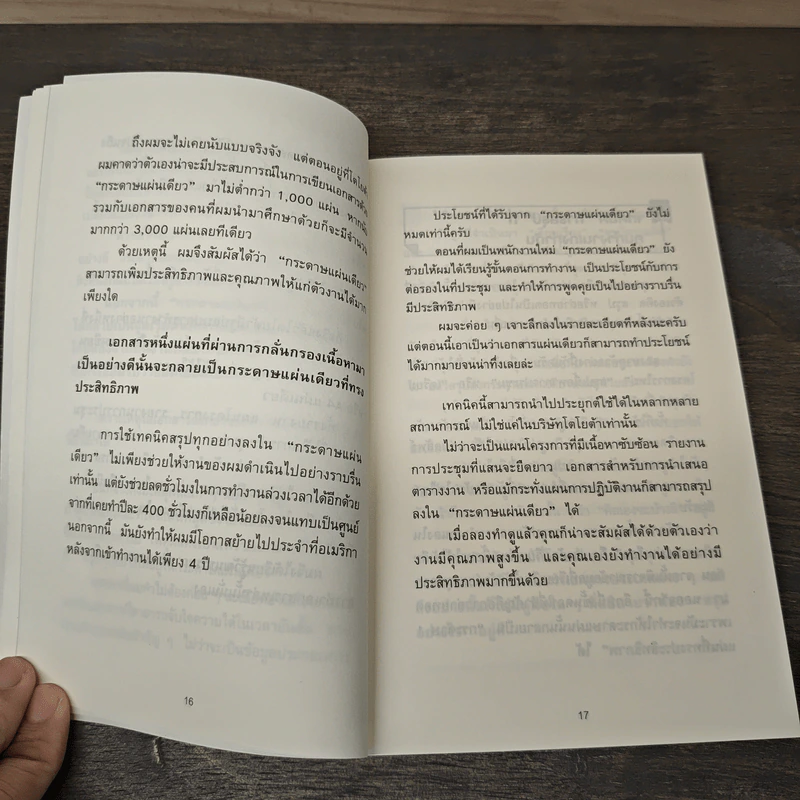 ถึงผมจะไม่เคยนับแบบจริงจัง แต่ตอนอยู่ที่โตโยต้า
ผมคาดว่าตัวเองน่าจะมีประสบการณ์ในการเขียนเอกสารด้วย
“กระดาษแผ่นเดียว” มาไม่ต่ำกว่า 1,000 แผ่น หากนับ
รวมกับเอกสารของคนที่ผมนำมาศึกษาด้วยก็จะมีจำนวน
มากกว่า 3,000 แผ่นเลยทีเดียว
ด้วยเหตุนี้ ผมจึงสัมผัสได้ว่า “กระดาษแผ่นเดียว”
สามารถเพิ่มประสิทธิภาพและคุณภาพให้แก่ตัวงานได้มาก
เพียงใด
เอกสารหนึ่งแผ่นที่ผ่านการกลั่นกรองเนื้อหามา
เป็นอย่างดีนั้นจะกลายเป็นกระดาษแผ่นเดียวที่ทรง
ประสิทธิภาพ
การใช้เทคนิคสรุปทุกอย่างลงใน “กระดาษแผ่น
เดียว” ไม่เพียงช่วยให้งานของผมดำเนินไปอย่างราบรื่น
เท่านั้น แต่ยังช่วยลดชั่วโมงในการทำงานล่วงเวลาได้อีกด้วย
จากที่เคยทำปีละ 400 ชั่วโมงก็เหลือน้อยลงจนแทบเป็นศูนย์
นอกจากนี้ มันยังทำให้ผมมีโอกาสย้ายไปประจำที่อเมริกา
หลังจากเข้าทำงานได้เพียง 4 ปี
16
ประโยชน์ที่ได้รับจาก “กระดาษแผ่นเดียว” ยังไม่
หมดเท่านี้ครับ
ตอนที่ผมเป็นพนักงานใหม่ “กระดาษแผ่นเดียว” ยัง
ช่วยให้ผมได้เรียนรู้ขั้นตอนการทำงาน เป็นประโยชน์กับการ
ต่อรองในที่ประชุม และทำให้การพูดคุยเป็นไปอย่างราบรื่น
มีประสิทธิภาพ
ผมจะค่อย ๆ เจาะลึกลงในรายละเอียดทีหลังนะครับ
แต่ตอนนี้เอาเป็นว่าเอกสารแผ่นเดียวก็สามารถทำประโยชน์
ได้มากมายจนน่าทึ่งเลยล่ะ
เทคนิคนี้สามารถนำไปประยุกต์ใช้ได้ในหลากหลาย
สถานการณ์ ไม่ใช่แค่ในบริษัทโตโยต้าเท่านั้น
ไม่ว่าจะเป็นแผนโครงการที่มีเนื้อหาซับซ้อน รายงาน
การประชุมที่แสนจะยืดยาว เอกสารสำหรับการนำเสนอ
ตารางงาน หรือแม้กระทั่งแผนการปฏิบัติงานก็สามารถสรุป
ลงใน “กระดาษแผ่นเดียว” ได้
เมื่อลองทำดูแล้วคุณก็น่าจะสัมผัสได้ด้วยตัวเองว่า
งานมีคุณภาพสูงขึ้น และคุณเองยังทำงานได้อย่างมี
ประสิทธิภาพมากขึ้นด้วย
17